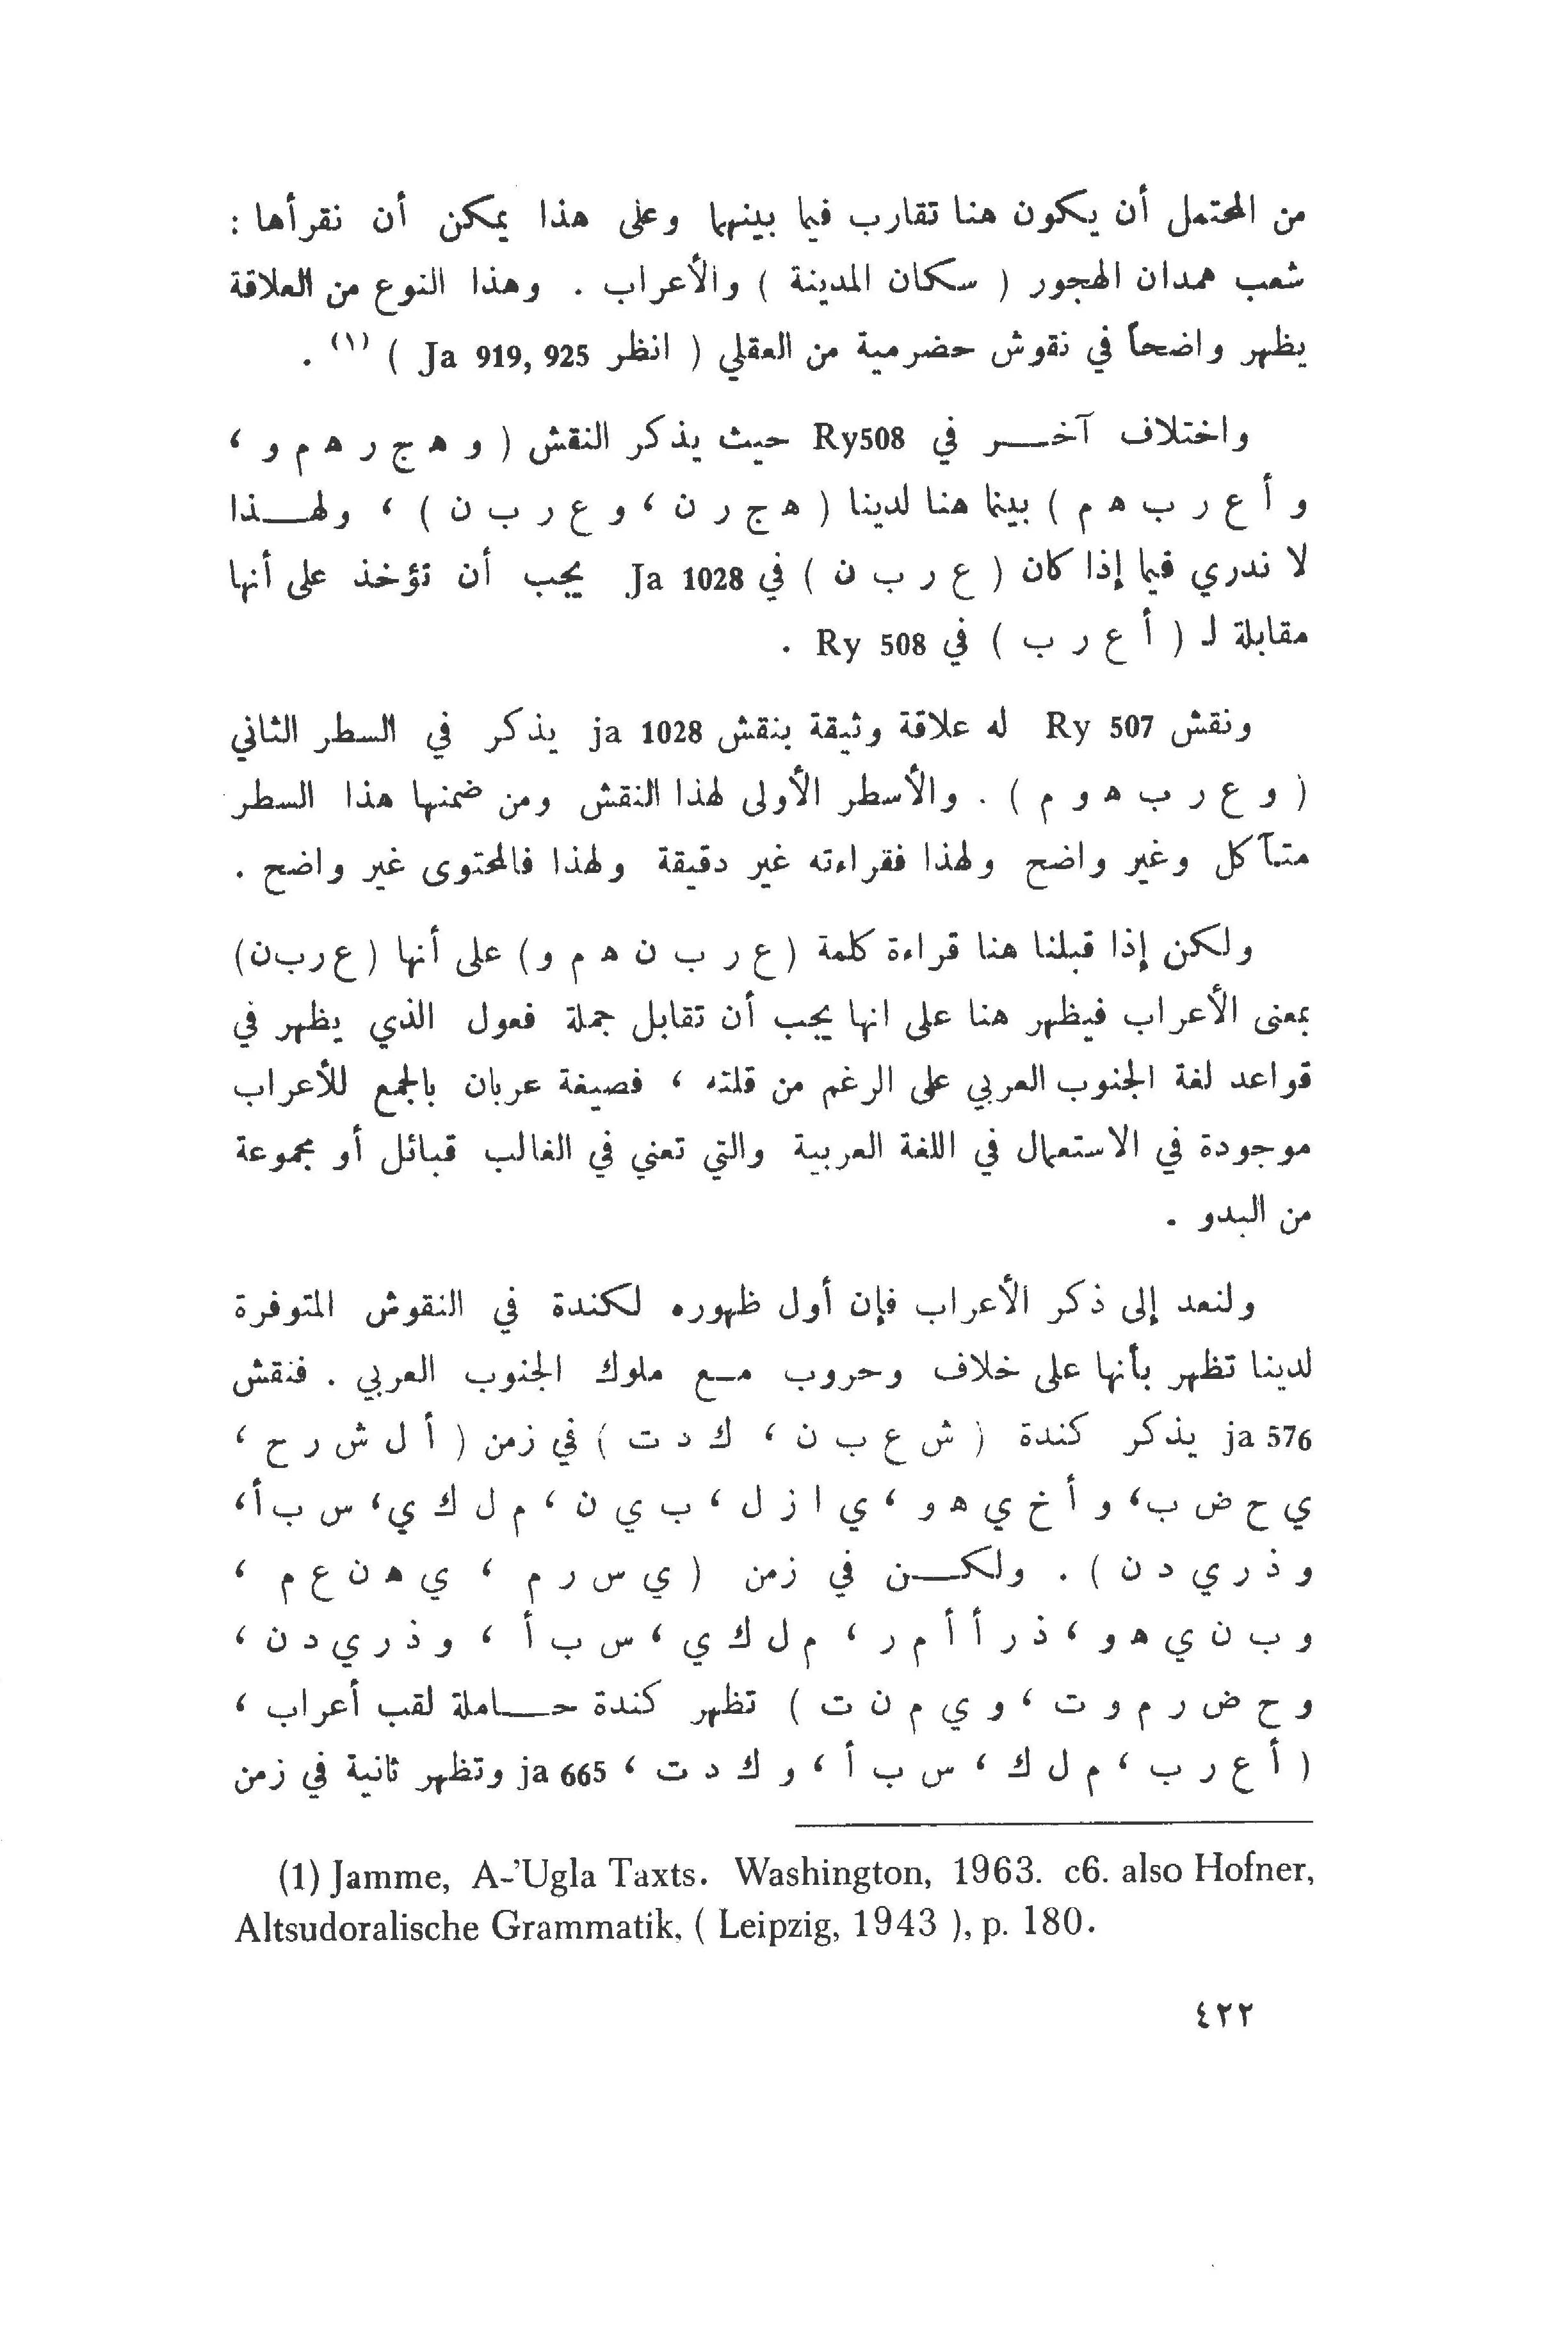 من المحتمل أن يكون هنا تقارب فيما بينهما وعلى هذا يمكن أن نقرأها :
شعب همدان الهجور ( سكان المدينة ) والأعراب . وهذا النوع من العلاقة
يظهر واضحاً في نقوش حضرمية من العقلي ( انظر Ja 919, 925 ) (١) .
واختلاف آخـــر في Ry508 حيث يذكر النقش ( و ه ج ر ه م و ،
و أ ع ر ب ه م ) بينما هنا لدينا ( ه ج ر ن ، و ع ر ب ن ) ، ولهـــذا
لا ندري فيما إذا كان ( ع ر ب ن ) في Ja 1028 يجب أن تؤخذ على أنها
مقابلة لـ ( أ ع ر ب ) في Ry 508 .
ونقش Ry 507 له علاقة وثيقة بنقش ja 1028 يذكر في السطر الثاني
( و ع ر ب ه و م ) . والأسطر الأولى لهذا النقش ومن ضمنها هذا السطر
متآكل وغير واضح ولهذا فقراءته غير دقيقة ولهذا فالمحتوى غير واضح .
ولكن إذا قبلنا هنا قراءة كلمة ( ع ر ب ن ه م و ) على أنها ( ع ر ب ن )
بمعنى الأعراب فيظهر هنا على انها يجب أن تقابل جملة فعول الذي يظهر في
قواعد لغة الجنوب العربي على الرغم من قلته ، فصيغة عربان بالجمع للأعراب
موجودة في الاستعمال في اللغة العربية والتي تعني في الغالب قبائل أو مجموعة
من البدو .
ولنعد إلى ذكر الأعراب فإن أول ظهوره لكندة في النقوش المتوفرة
لدينا تظهر بأنها على خلاف وحروب مـع ملوك الجنوب العربي . فنقش
ja 576 يذكر كندة ( ش ع ب ن ، ك د ت ) في زمن ( أ ل ش ر ح ،
ي ح ض ب ، و أ خ ي ه و ، ي ا ز ل ، ب ي ن ، م ل ك ي ، س ب أ ،
و ذ ر ي د ن ) . ولكـــن في زمن ( ي س ر م ، ي ه ن ع م ،
و ب ن ي ه و ، ذ ر أ أ م ر ، م ل ك ي ، س ب أ ، و ذ ر ي د ن ،
و ح ض ر م و ت ، و ي م ن ت ) تظهر كندة حـــاملة لقب أعراب ،
( أ ع ر ب ، م ل ك ، س ب أ ، و ك د ت ، ja 665 وتظهر ثانية في زمن
(1) Jamme, A-'Ugla Taxts. Washington, 1963. c6. also Hofner,
Altsudoralische Grammatik, ( Leipzig, 1943 ), p. 180.
٤٢٢